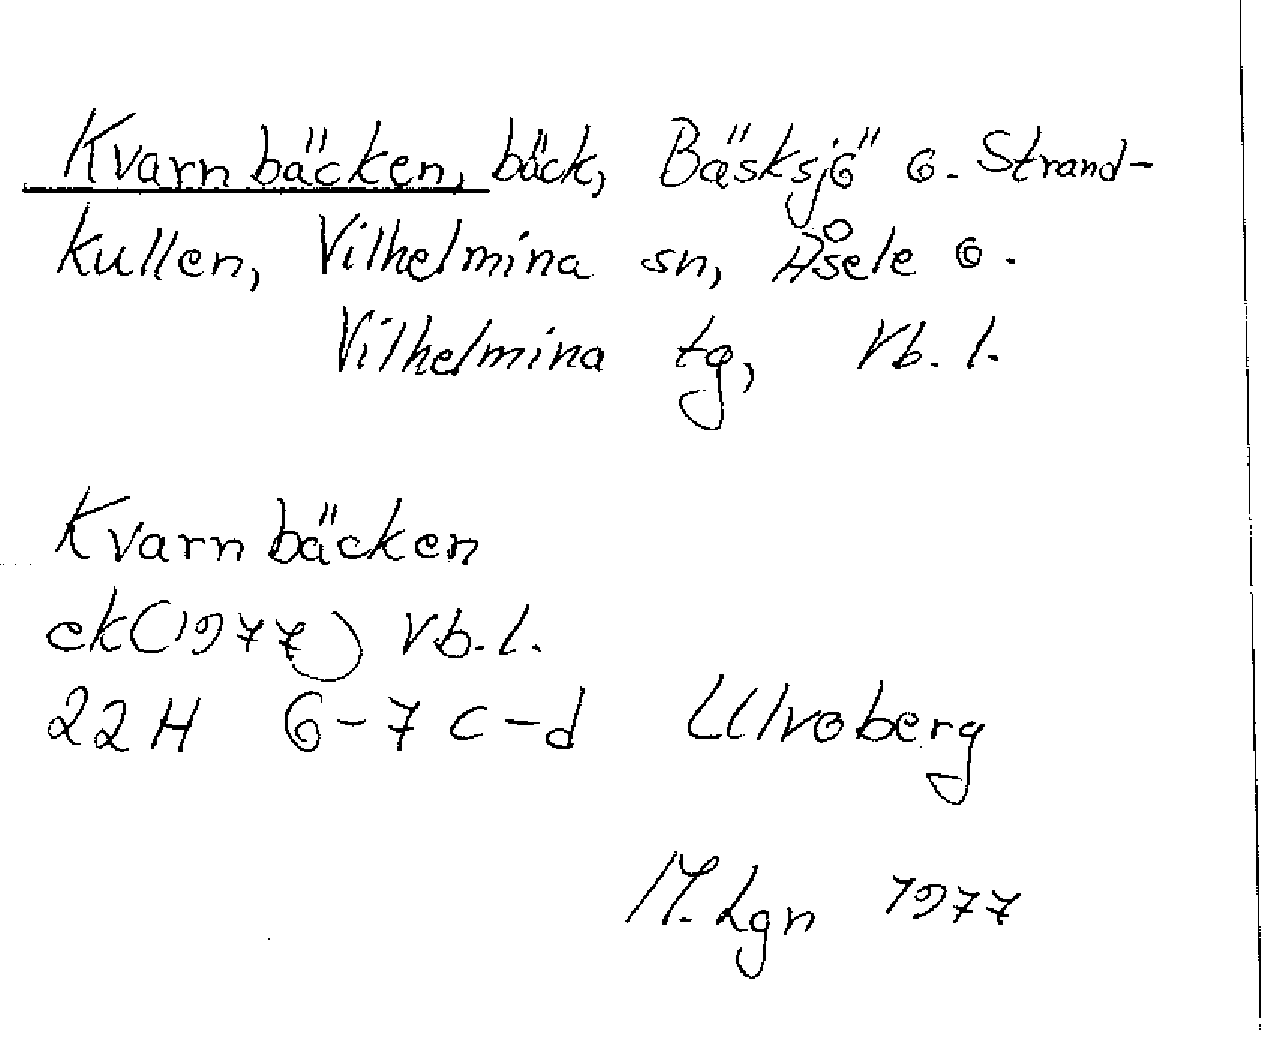 Kvarnbäcken, bäck, Bäsksjö o. Strand-
kullen, Vilhelmina sn, Åsele o.
Vilhelmina tg, Vb. l.
Kvarnbäcken
ek(1977) Vb.l.
22H 6-7 c-d Ulvoberg
M. Lgn 1977